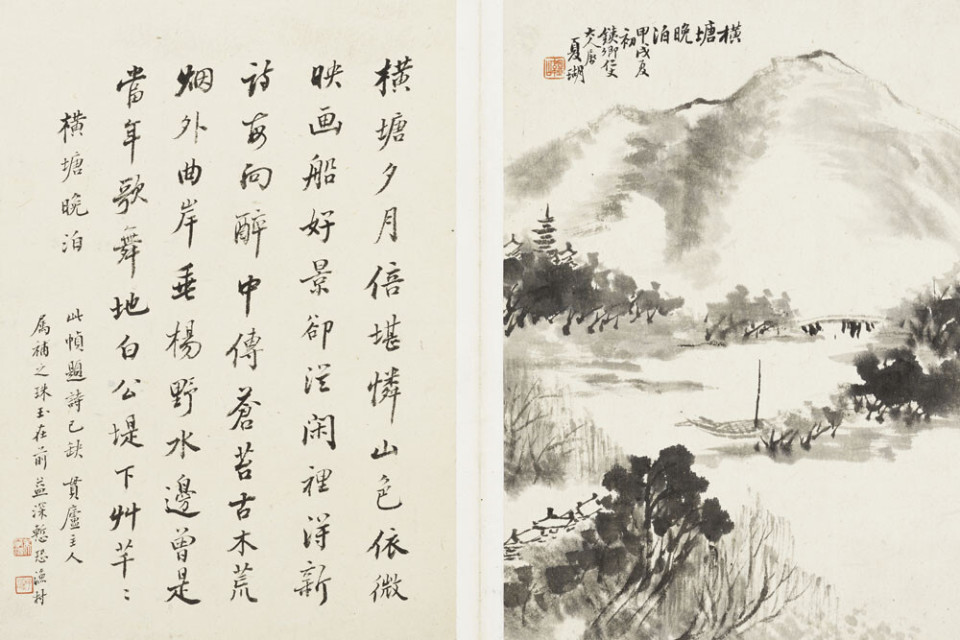 橫塘晚泊
甲戌夏
初
鐵卿仁丈
大人属
夏瑚
橫塘夕月倍堪憐山色依微
映画船好景卻從闲裡得新
詩每向醉中傳蒼苔古木荒
烟外曲岸垂楊野水邊曾是
當年歌舞地白公堤下艸芊〻
橫塘晚泊
此幀題詩已缺貫廬主人
属補之珠玉在前益深慙恐漁村